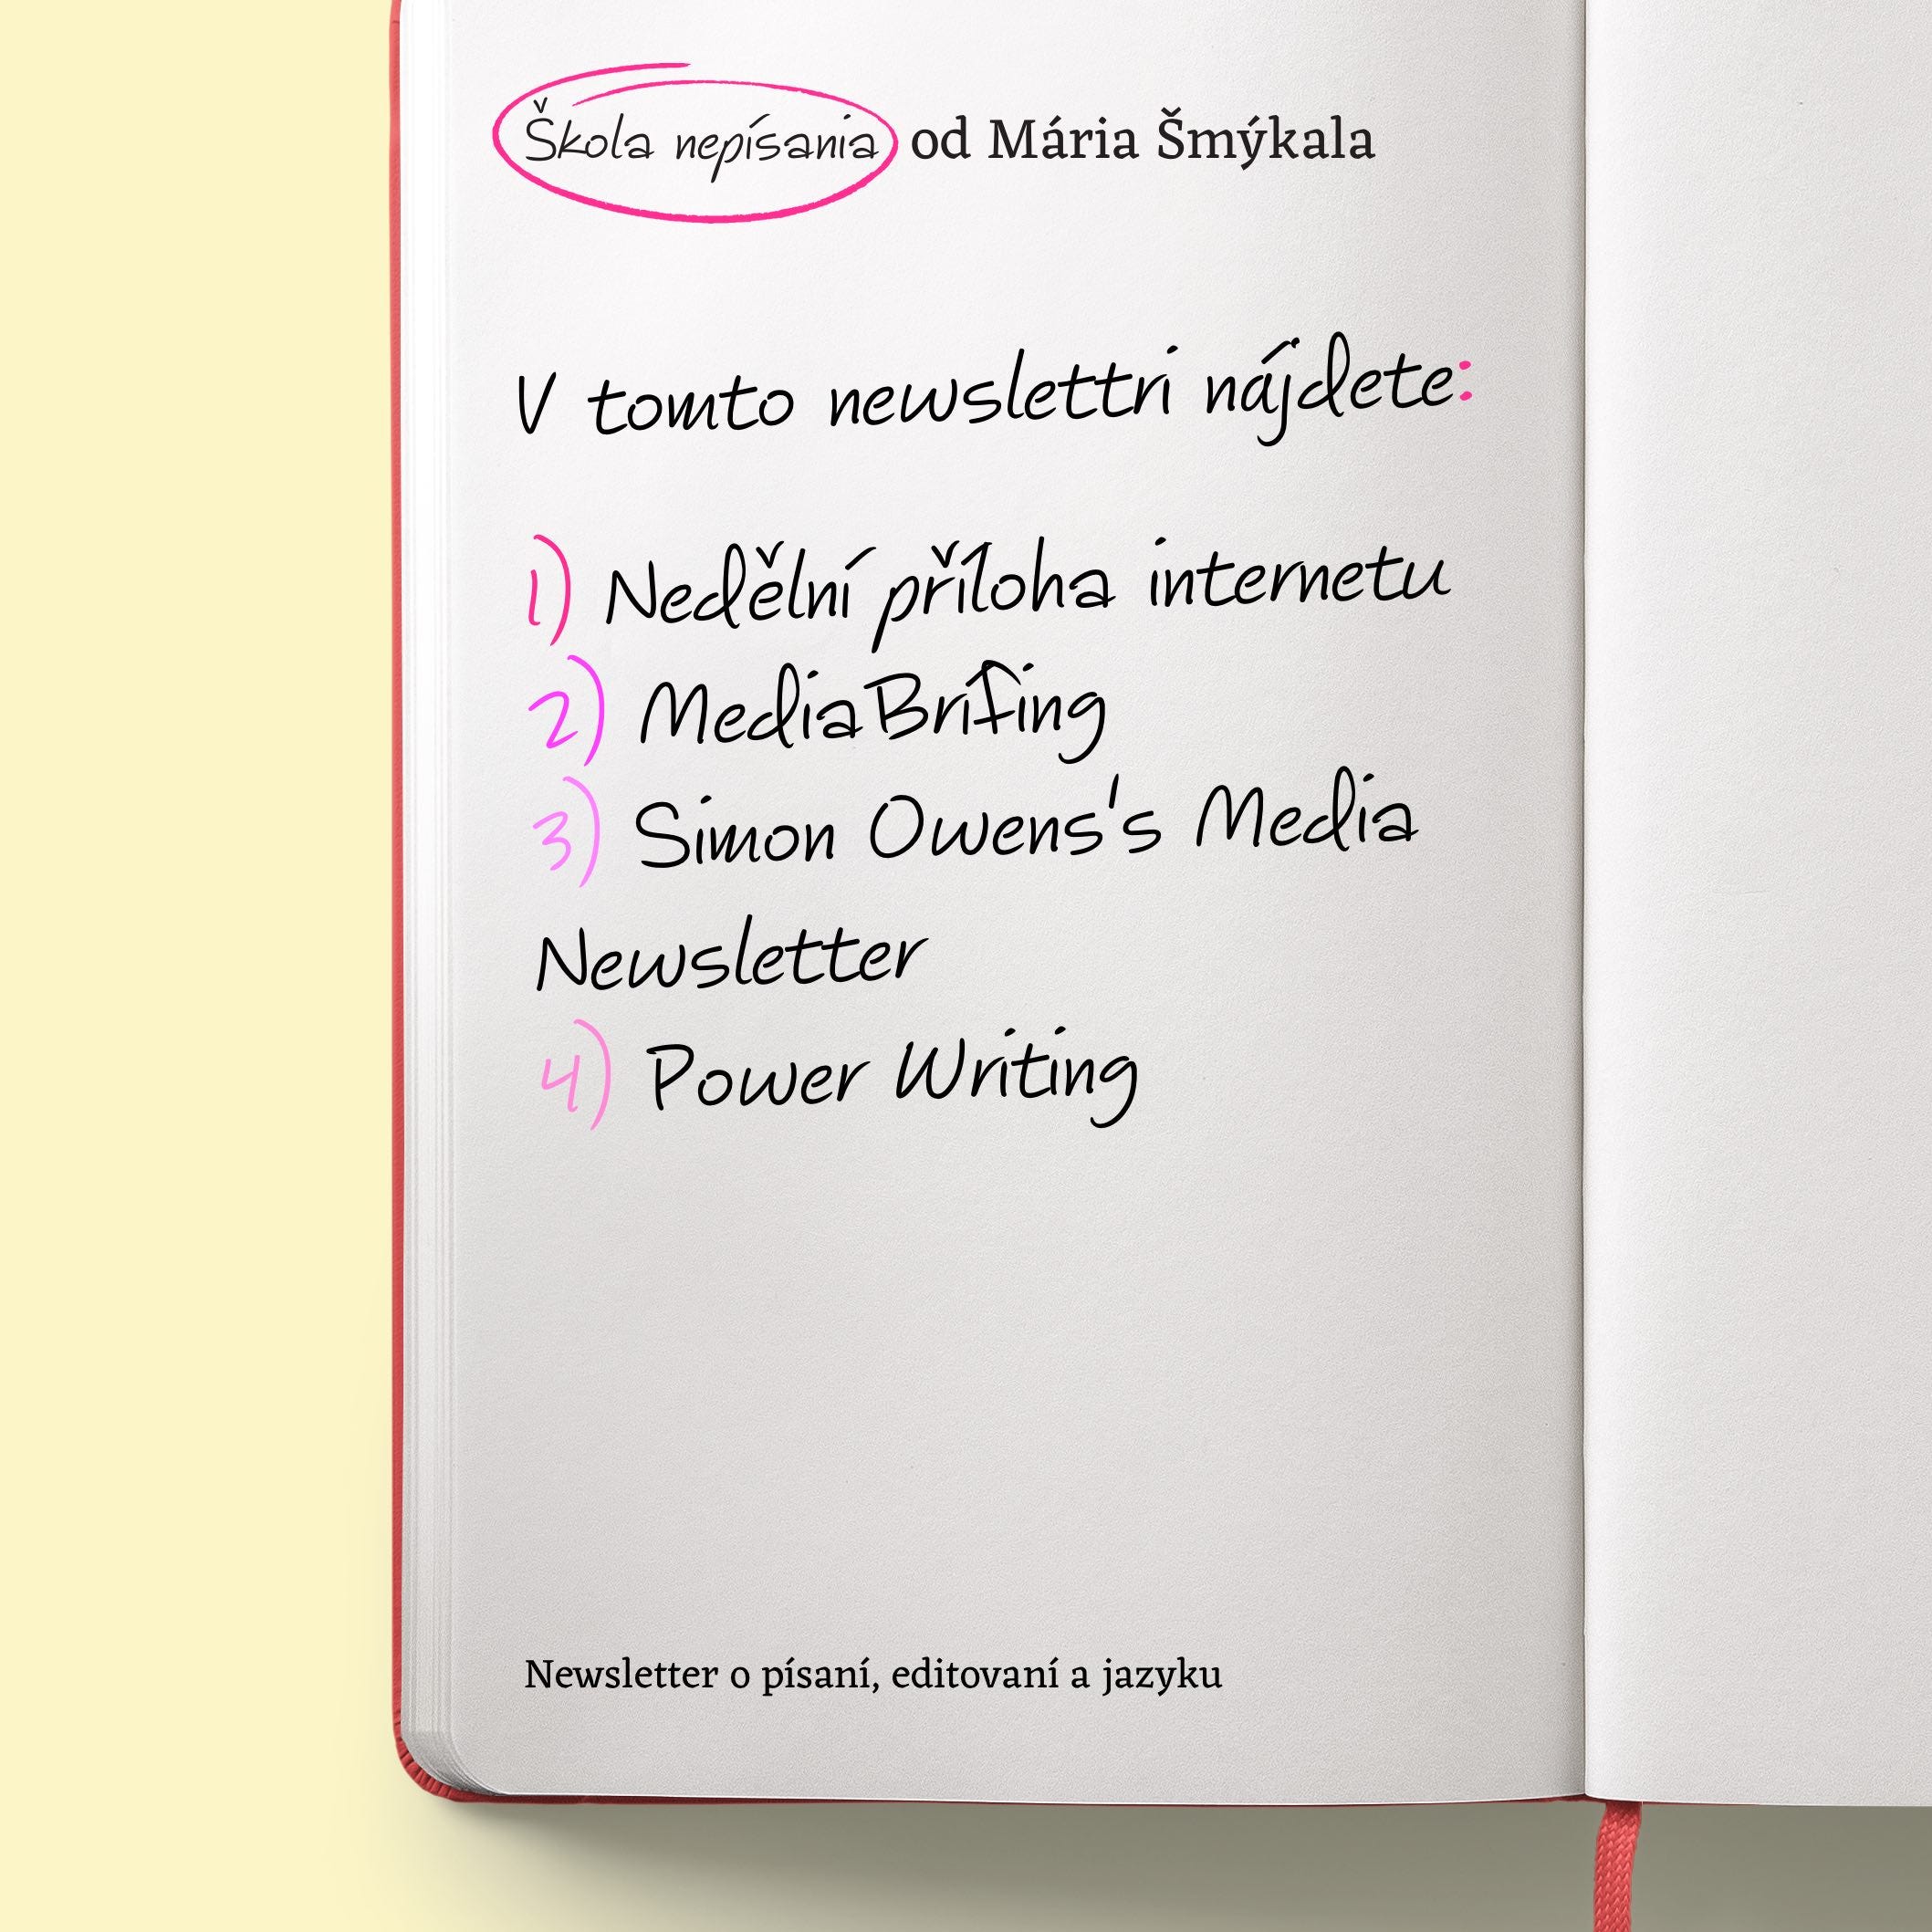 Škola nepísania od Mária Šmýkala
V tomto newslettri nájdete:
1) Nedělní příloha internetu
2) MediaBrífing
3) Simon Owens's Media
Newsletter
4) Power Writing
Newsletter o písaní, editovaní a jazyku